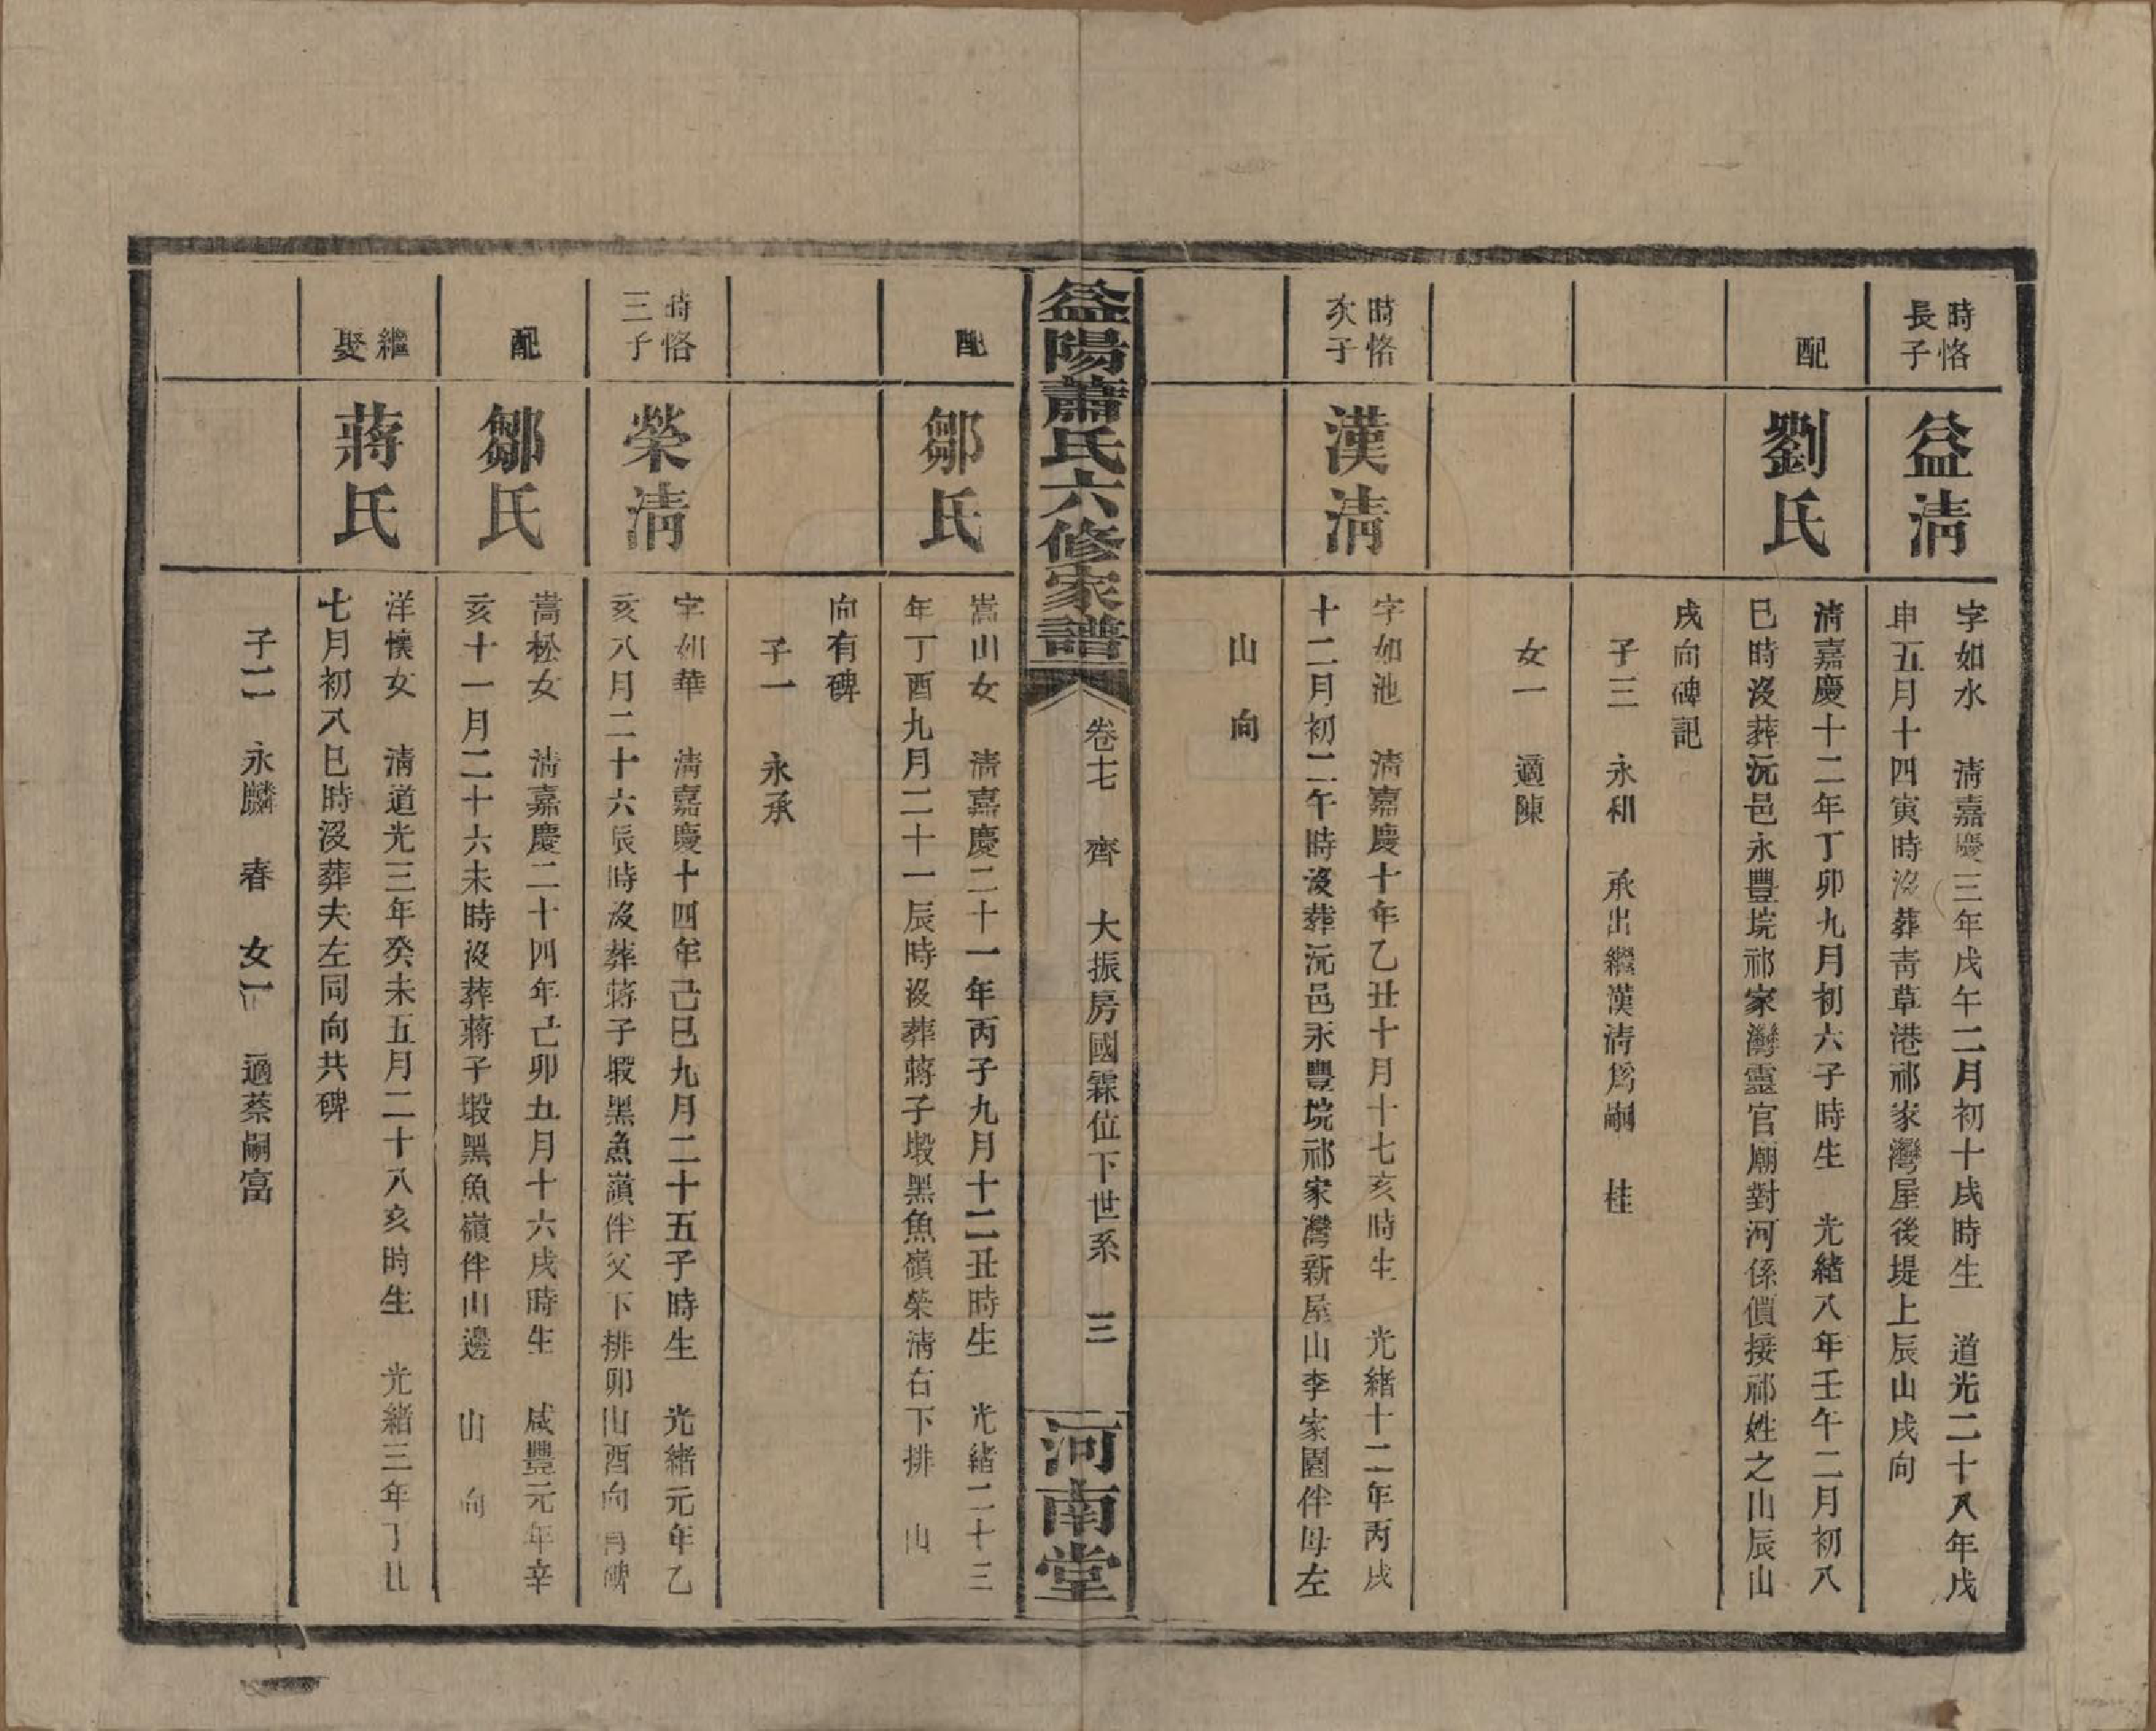 時恪
長子
益淸
字如水　淸嘉慶三年戊午二月初十戌時生　道光二十八年戊
申五月十四寅時沒葬靑草港祁家灣屋後堤上辰山戌向
配
劉氏
淸嘉慶十二年丁卯九月初六子時生　光緖八年壬午二月初八
巳時沒葬沅邑永豐垸祁家灣靈官廟對河係價接祁姓之山辰山
戌向碑記
子三　永和　承出繼漢淸爲嗣　桂
女一　適陳
時恪
次子
漢淸
字如池　淸嘉慶十年乙丑十月十七亥時生　光緖十二年丙戌
十二月初二午時沒葬沅邑永豐垸祁家灣新屋山李家園伴母左
山　向
益陽蕭氏六修家譜
卷七　齊　大振房國霖位下世系　三
河南堂
配
鄒氏
嵩山女　淸嘉慶二十一年丙子九月十二丑時生　光緖二十三
年丁酉九月二十一辰時沒葬蔣子塅黑魚嶺榮淸右下排　山
向有碑
子一　永承
時恪
三子
榮淸
字如華　淸嘉慶十四年己巳九月二十五子時生　光緖元年乙
亥八月二十六辰時沒葬蔣子塅黑魚嶺伴父下排卯山酉向有碑
配
鄒氏
嵩松女　淸嘉慶二十四年己卯五月十六戌時生　咸豐元年辛
亥十一月二十六未時沒葬蔣子塅黑魚嶺伴山邊　山　向
繼
娶
蔣氏
洋懷女　淸道光三年癸未五月二十八亥時生　光緖三年丁丑
七月初八巳時沒葬夫左同向共碑
子二　永麟　春　女一　適蔡嗣富